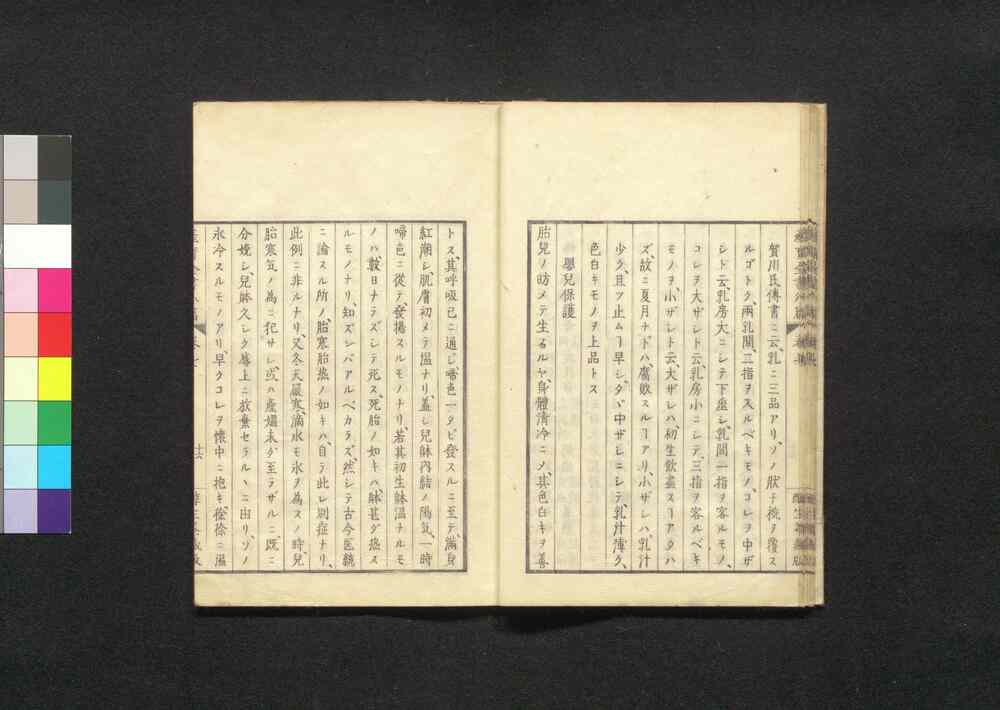 賀川氏傳書ニ云乳ニ三品アリ、ソノ狀子椀ヲ覆ス
ルゴトク、兩乳間二指ヲ入ルベキモノ、コレヲ中ザ
シト云、乳房大ニシテ下垂シ、乳間一指ヲ容ルモノ、
コレヲ大ザシト云、乳房小ニシテ、三指ヲ容ルベキ
モノヲ、小ザシト云、大ザシハ、初生飲盡スヿアタハ
ズ、故ニ夏月ナドハ腐敗スルヿアリ、小ザシハ、乳汁
少ク、且ツ止ムヿ早シ、タヾ中ザシニシテ、乳汁薄ク、
色白キモノヲ上品トス
嬰兒保護
胎兒ノ始メテ生ルヽヤ、身體清冷ニソ、其色白キヲ善
トス、其呼吸已ニ通ジ、啼色一タビ發スルニ至テ、滿身
紅潮シ、肌膚初メテ温ナリ、蓋シ兒躰內結ノ陽氣、一時
啼色ニ從テ、發揚スルモノナリ、若其初生躰温ナルモ
ノハ、數日ナラズシテ死ス、死胎ノ如キハ、躰甚ダ熱ス
ルモノナリ、知ズンバアルベカラズ、然シテ古今医統
ニ論スル所ノ、胎寒胎热ノ如キハ、自ラ此レ別症ナリ、
此例ニ非ルナリ、又冬天嚴寒、滴水モ氷ヲ為スノ時、兒
胎寒気ノ為ニ犯サレ、或ハ產媼未ダ至ラザルニ、既ニ
分娩シ、兒躰久シク蓐上ニ放棄セラルヽニ由リ、ソノ
氷冷スルモノアリ、早クコレヲ懷中ニ抱キ、徐徐ニ温